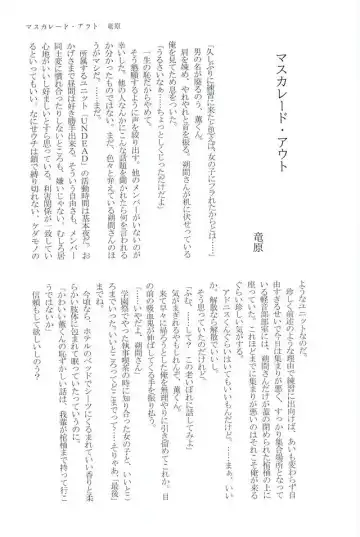 マスカレード・アウト　竜原
マスカレード・アウト
竜原
「久しぶりに練習に来たと思えば、女の子にフラれたからとは……。
男の名が廃るのう、薫くん」
肩を竦め、やれやれと首を振る。朔間さんが机に伏せっている
俺を見てため息をついた。
「うるさいなぁ……ちょっとしくじっただけだよ」
一生の恥だからやめて。
そう懇願するように声を絞り出す。他のメンバーがいないのが
幸いした。他の人なんかにこんな話題を聞かれたら何を言われる
か分かったものではない。まだ、色々と弁えている朔間さんのほ
うがマシだ。……まだ。
所属するユニット『ＵＮＤＥＡＤ』の活動時間は基本夜だ。お
かげさまで昼間は好き勝手出来る。そういう自由さも、メンバー
同士変に慣れ合ったりしないところも、嫌いじゃない。むしろ居
心地がいいし好ましいとすら思っている。利害関係が一致してい
るといってもいい。なにせウチは鎖で縛り切れない、ケダモノの
ようなユニットなのだ。
珍しく前述のような理由で練習に出向けば、あいも変わらず自
由すぎるせいで今日は集まりが悪く、すっかり集合場所となって
いる軽音部部室には、朔間さんだけが蓋の閉められた棺桶の上に
座っていた。これほどまでに集まりが悪いのはそれこそ俺が来る
ぐらい珍しい気がする。
アドニスくんぐらいはいてもいいもんだけど。……まぁ、いい
か、解散なら解散でいいし。
そう思っていたのだけれど。
「ふむ、……して？　この老いぼれに話してみよ。
気がまぎれるやもしれんぞ、薫くん」
来て早々に帰ろうとした俺を無理やりに引き留めてこれか。目
の前の吸血鬼が伸ばしてくる手を振り払う。
「……いやだよ、朔間さん」
学園祭でやった執事喫茶の時に知り合った女の子と、いいとこ
ろまでいった。いいところってどこまでって？　……そりゃあ、「最後」
までね。
今頃なら、ホテルのベッドでシーツにくるまれていい香りと柔
らかい肢体に包まれて眠っていたっていうのに。
「かわいい薫くんの恥ずかしい話は、我輩が棺桶まで持って行こ
うではないか」
信頼もしてて欲しいしのう？